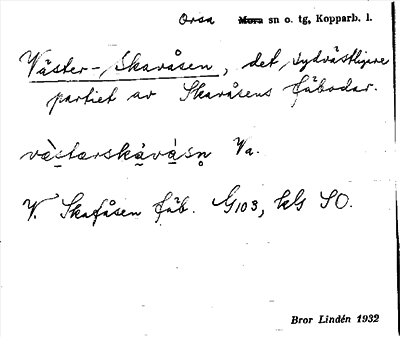 Orsa Mora sn o. tg, Kopparb. l.
Väster-Skavåsen, det sydvästligare
partiet av Skavåsens fäbodar.
væ̀stærskà̠vå̀sn̥ Va.
V. Skafåsen fäb. G103, kbl SO.
Bror Lindén 1932